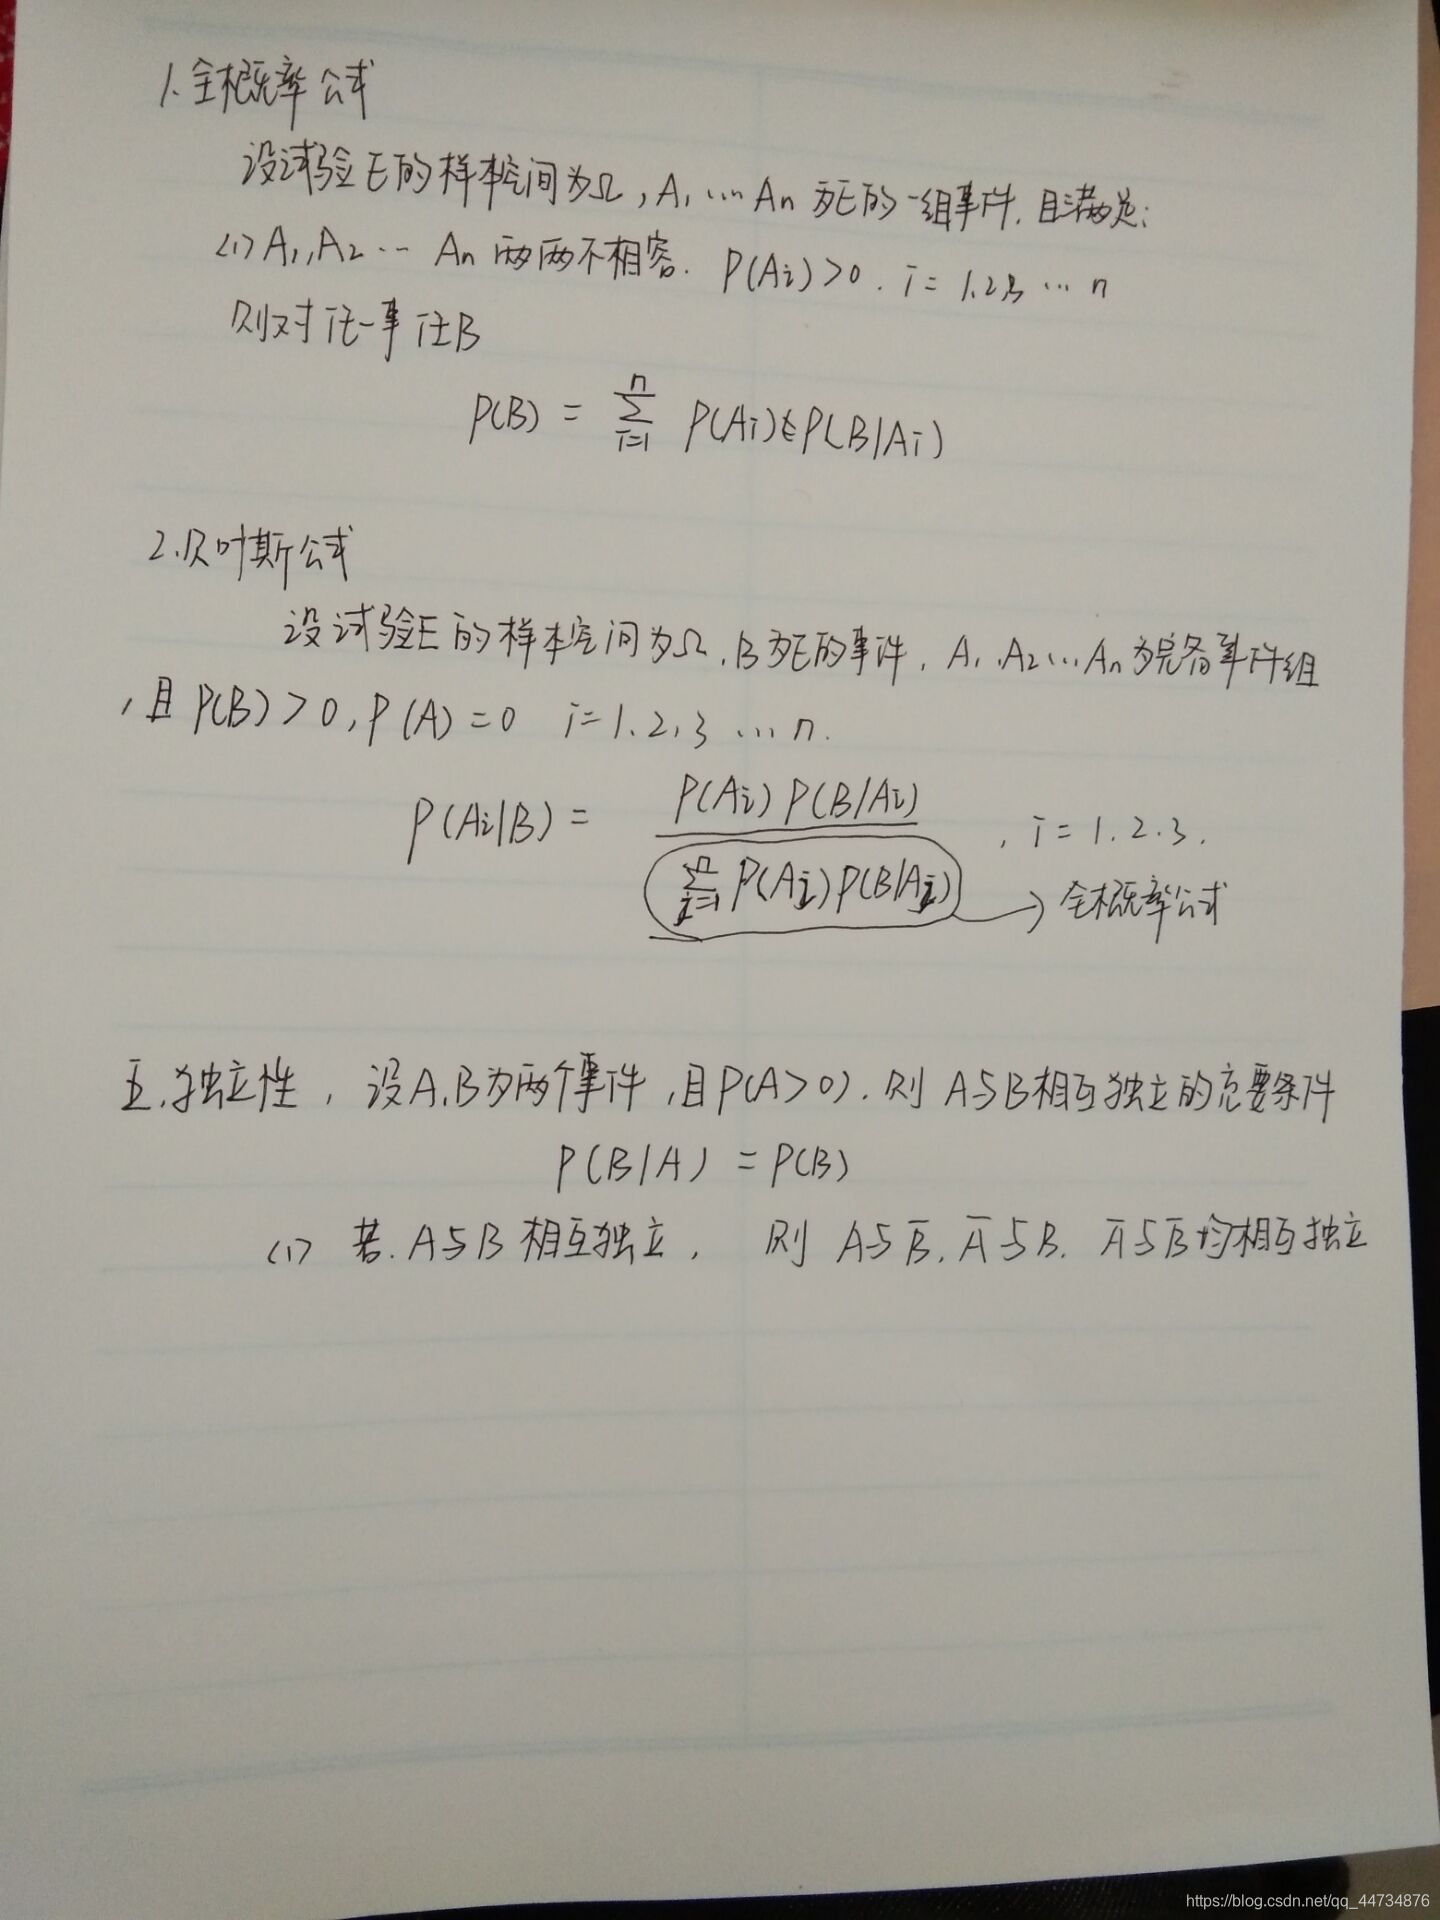 1.全概率公式
设试验E的样本空间为Ω,A₁…An为E的一组事件.且满足:
(1)A₁,A₂… An两两不相容. P(Ai)>0. i=1.2.3…n
则对任一事任B
P(B) = ∑_{i=1}^{n} P(Ai)P(B|Ai)
2.贝叶斯公式
设试验E的样本空间为Ω.B为E的事件. A₁.A₂…An为完备事件组
,且P(B)>0,P(A)=0 i=1.2,3…n.
P(Ai|B) = P(Ai)P(B|Ai) / ∑_{j=1}^{n} P(Aj)P(B|Aj) , i=1.2.3. → 全概率公式
五.独立性, 设A.B为两个事件,且P(A>0).则 A与B相互独立的充要条件
P(B|A) = P(B)
(1) 若.A与B相互独立, 则 A与B̅. A̅与B. A̅与B̅均相互独立
https://blog.csdn.net/qq_44734876